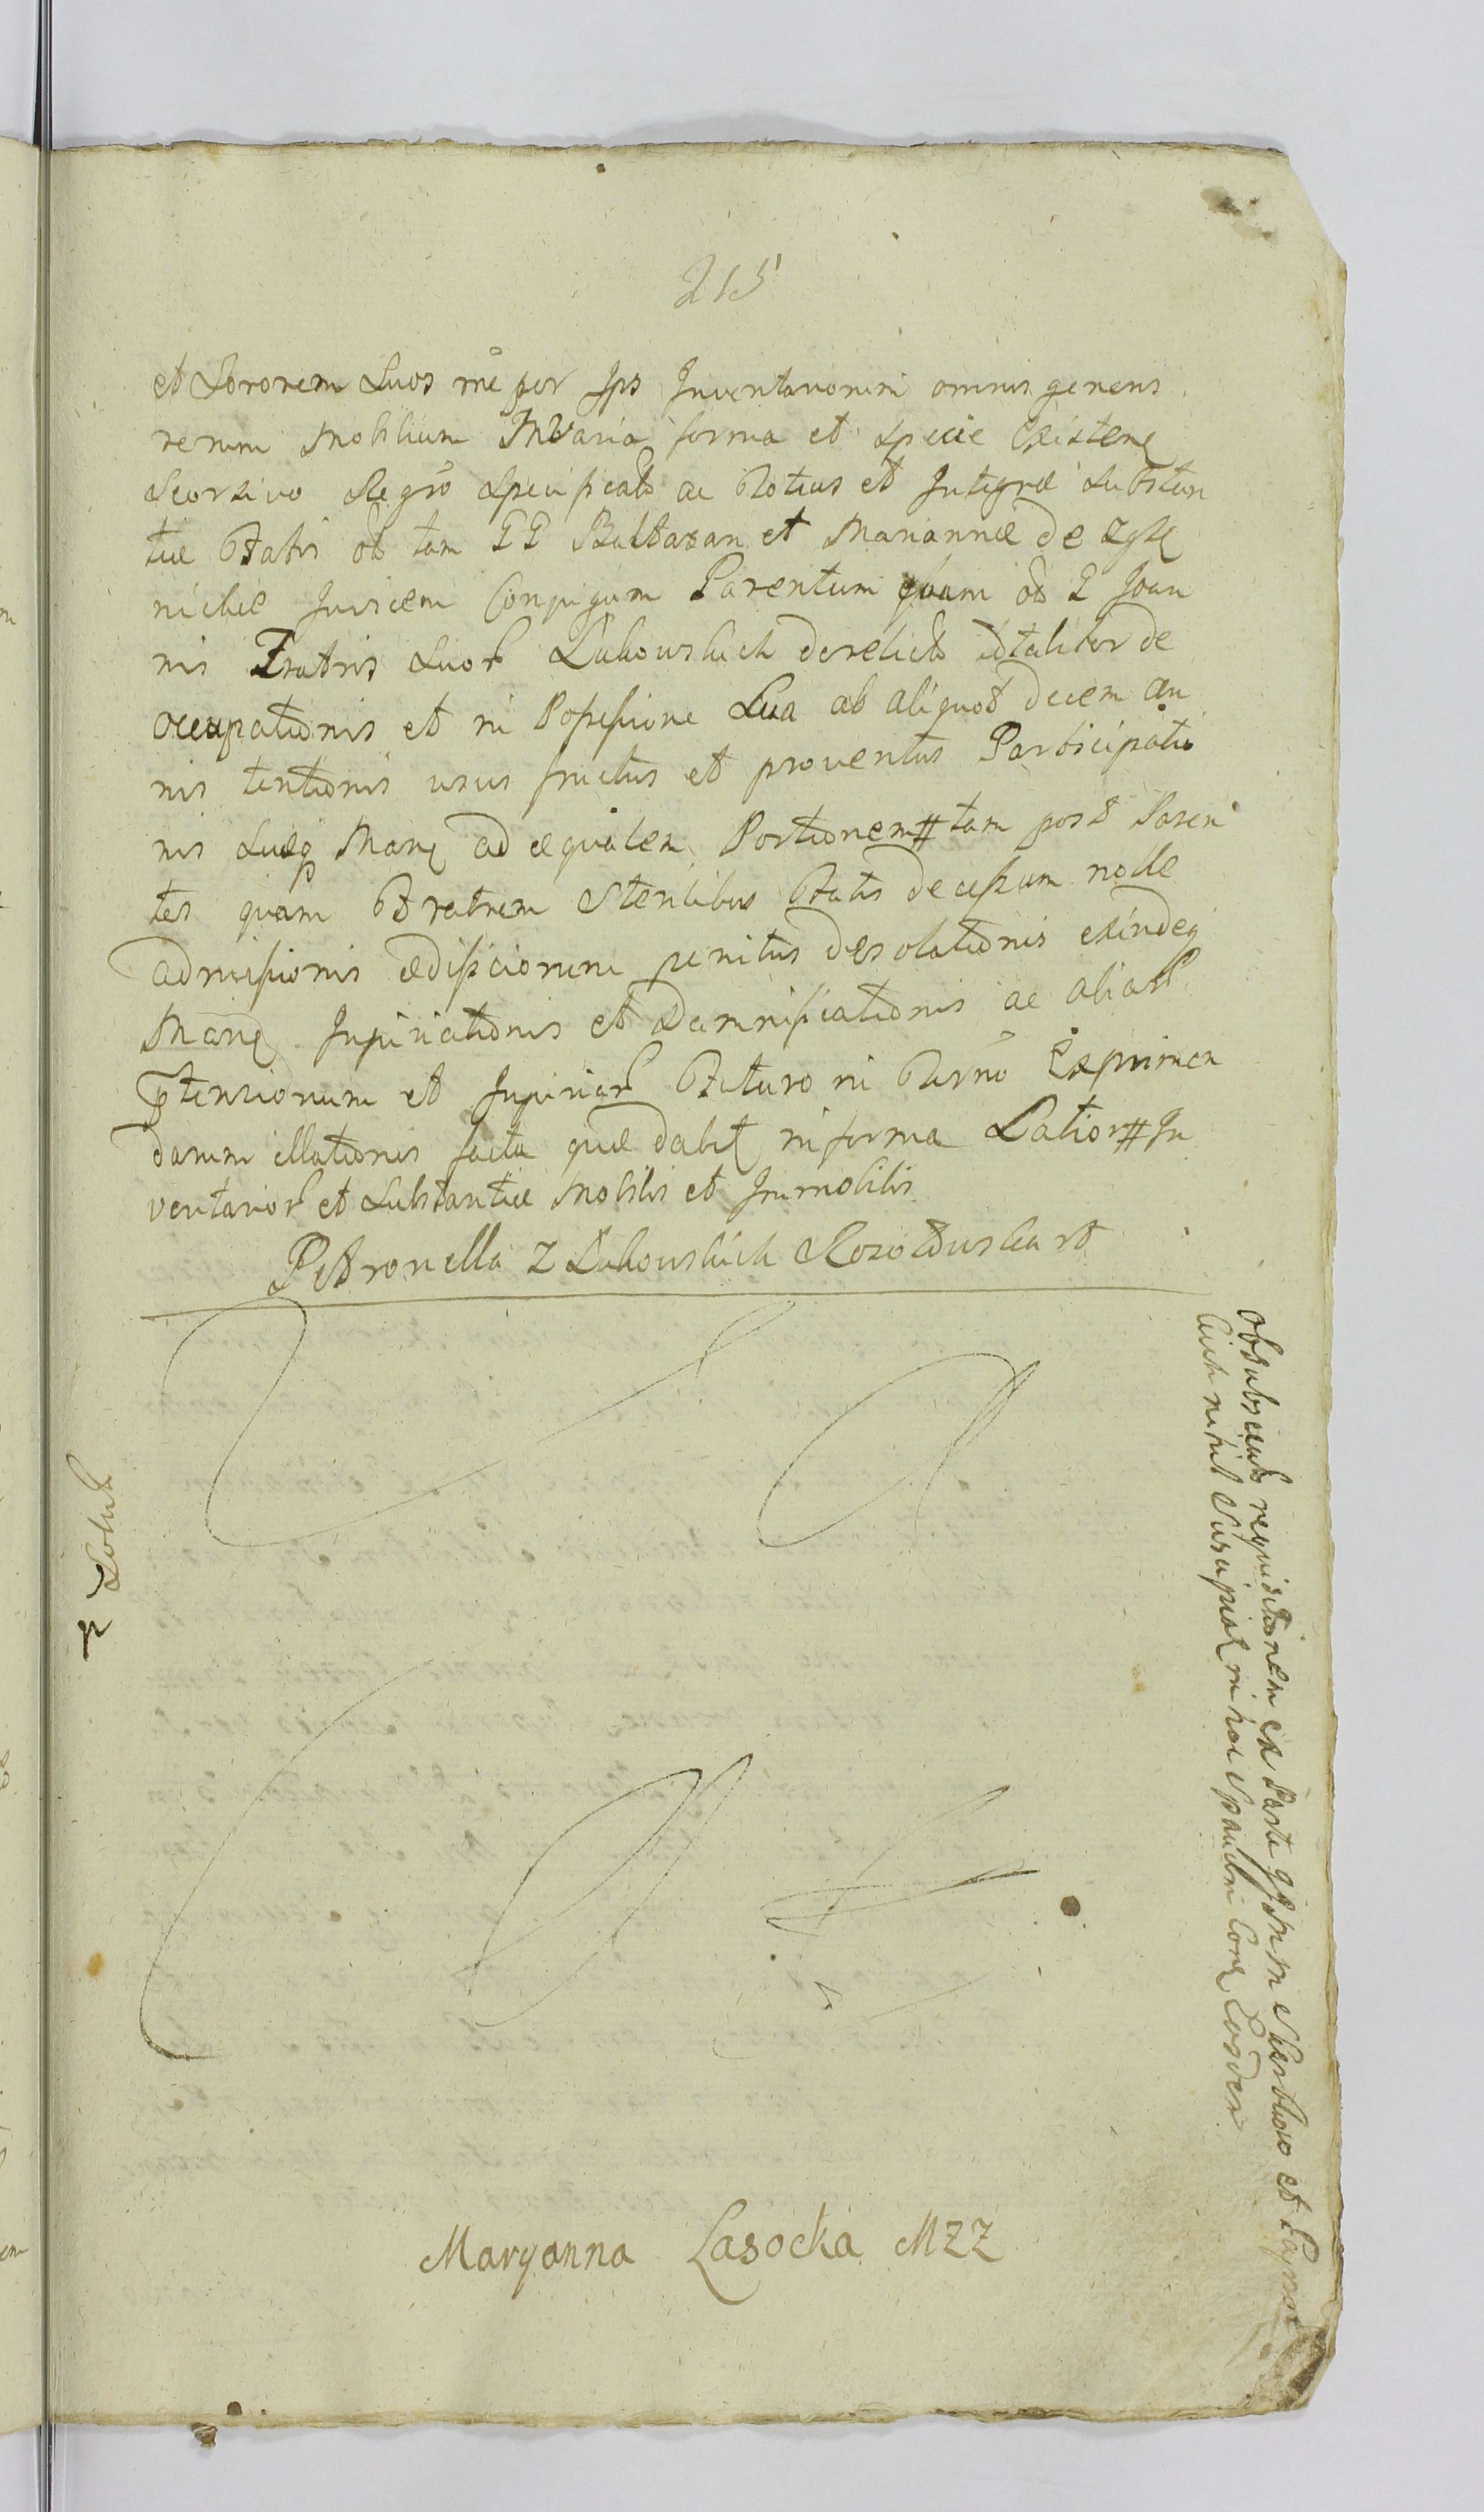 215
et Sororem Suos me per Ips Inventariorum omnis generis
rerum Mobilium In Varia forma et Specie Existen
Seorsivo Regro Specificato ac Totius et Integræ Substan
tiæ Statis ob tam GG Baltazari et Mariannæ de
nickie Invicem Conjugum Parentum quam ob G Joan
nis Fratris Suor Lukowskich derelicto taliter de
occupationis et in Possessione Sua ab aliquod decem an
nis tentionis usus fructus et proventus Participatio
nis Suæq Mane ad æqualem Portionem # tam post Paren
tes quam Fratrem Sterilibus Fatis decessum nolle
admissionis ædificiorum penitus desolationis exindeq
Mane Injuriationis et Damnificationis ac aliar
ptensionum et Injuriar Futuro in Termo Exprimen
darum illationis facta quæ dabit in forma Latior # In
ventarior et Substantiæ Mobilis et Immobilis
Petronella z Lukowskich
obsubsciento requisitionem ex Parte G et
nihil Suscipiat in hoc Spacium Cone Eosdem
Maryanna Lasocka MZZ